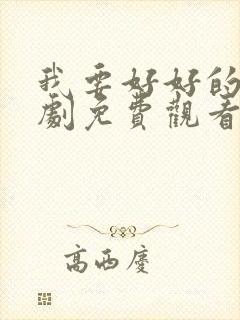 我要好好的
劇免費觀看
高西慶